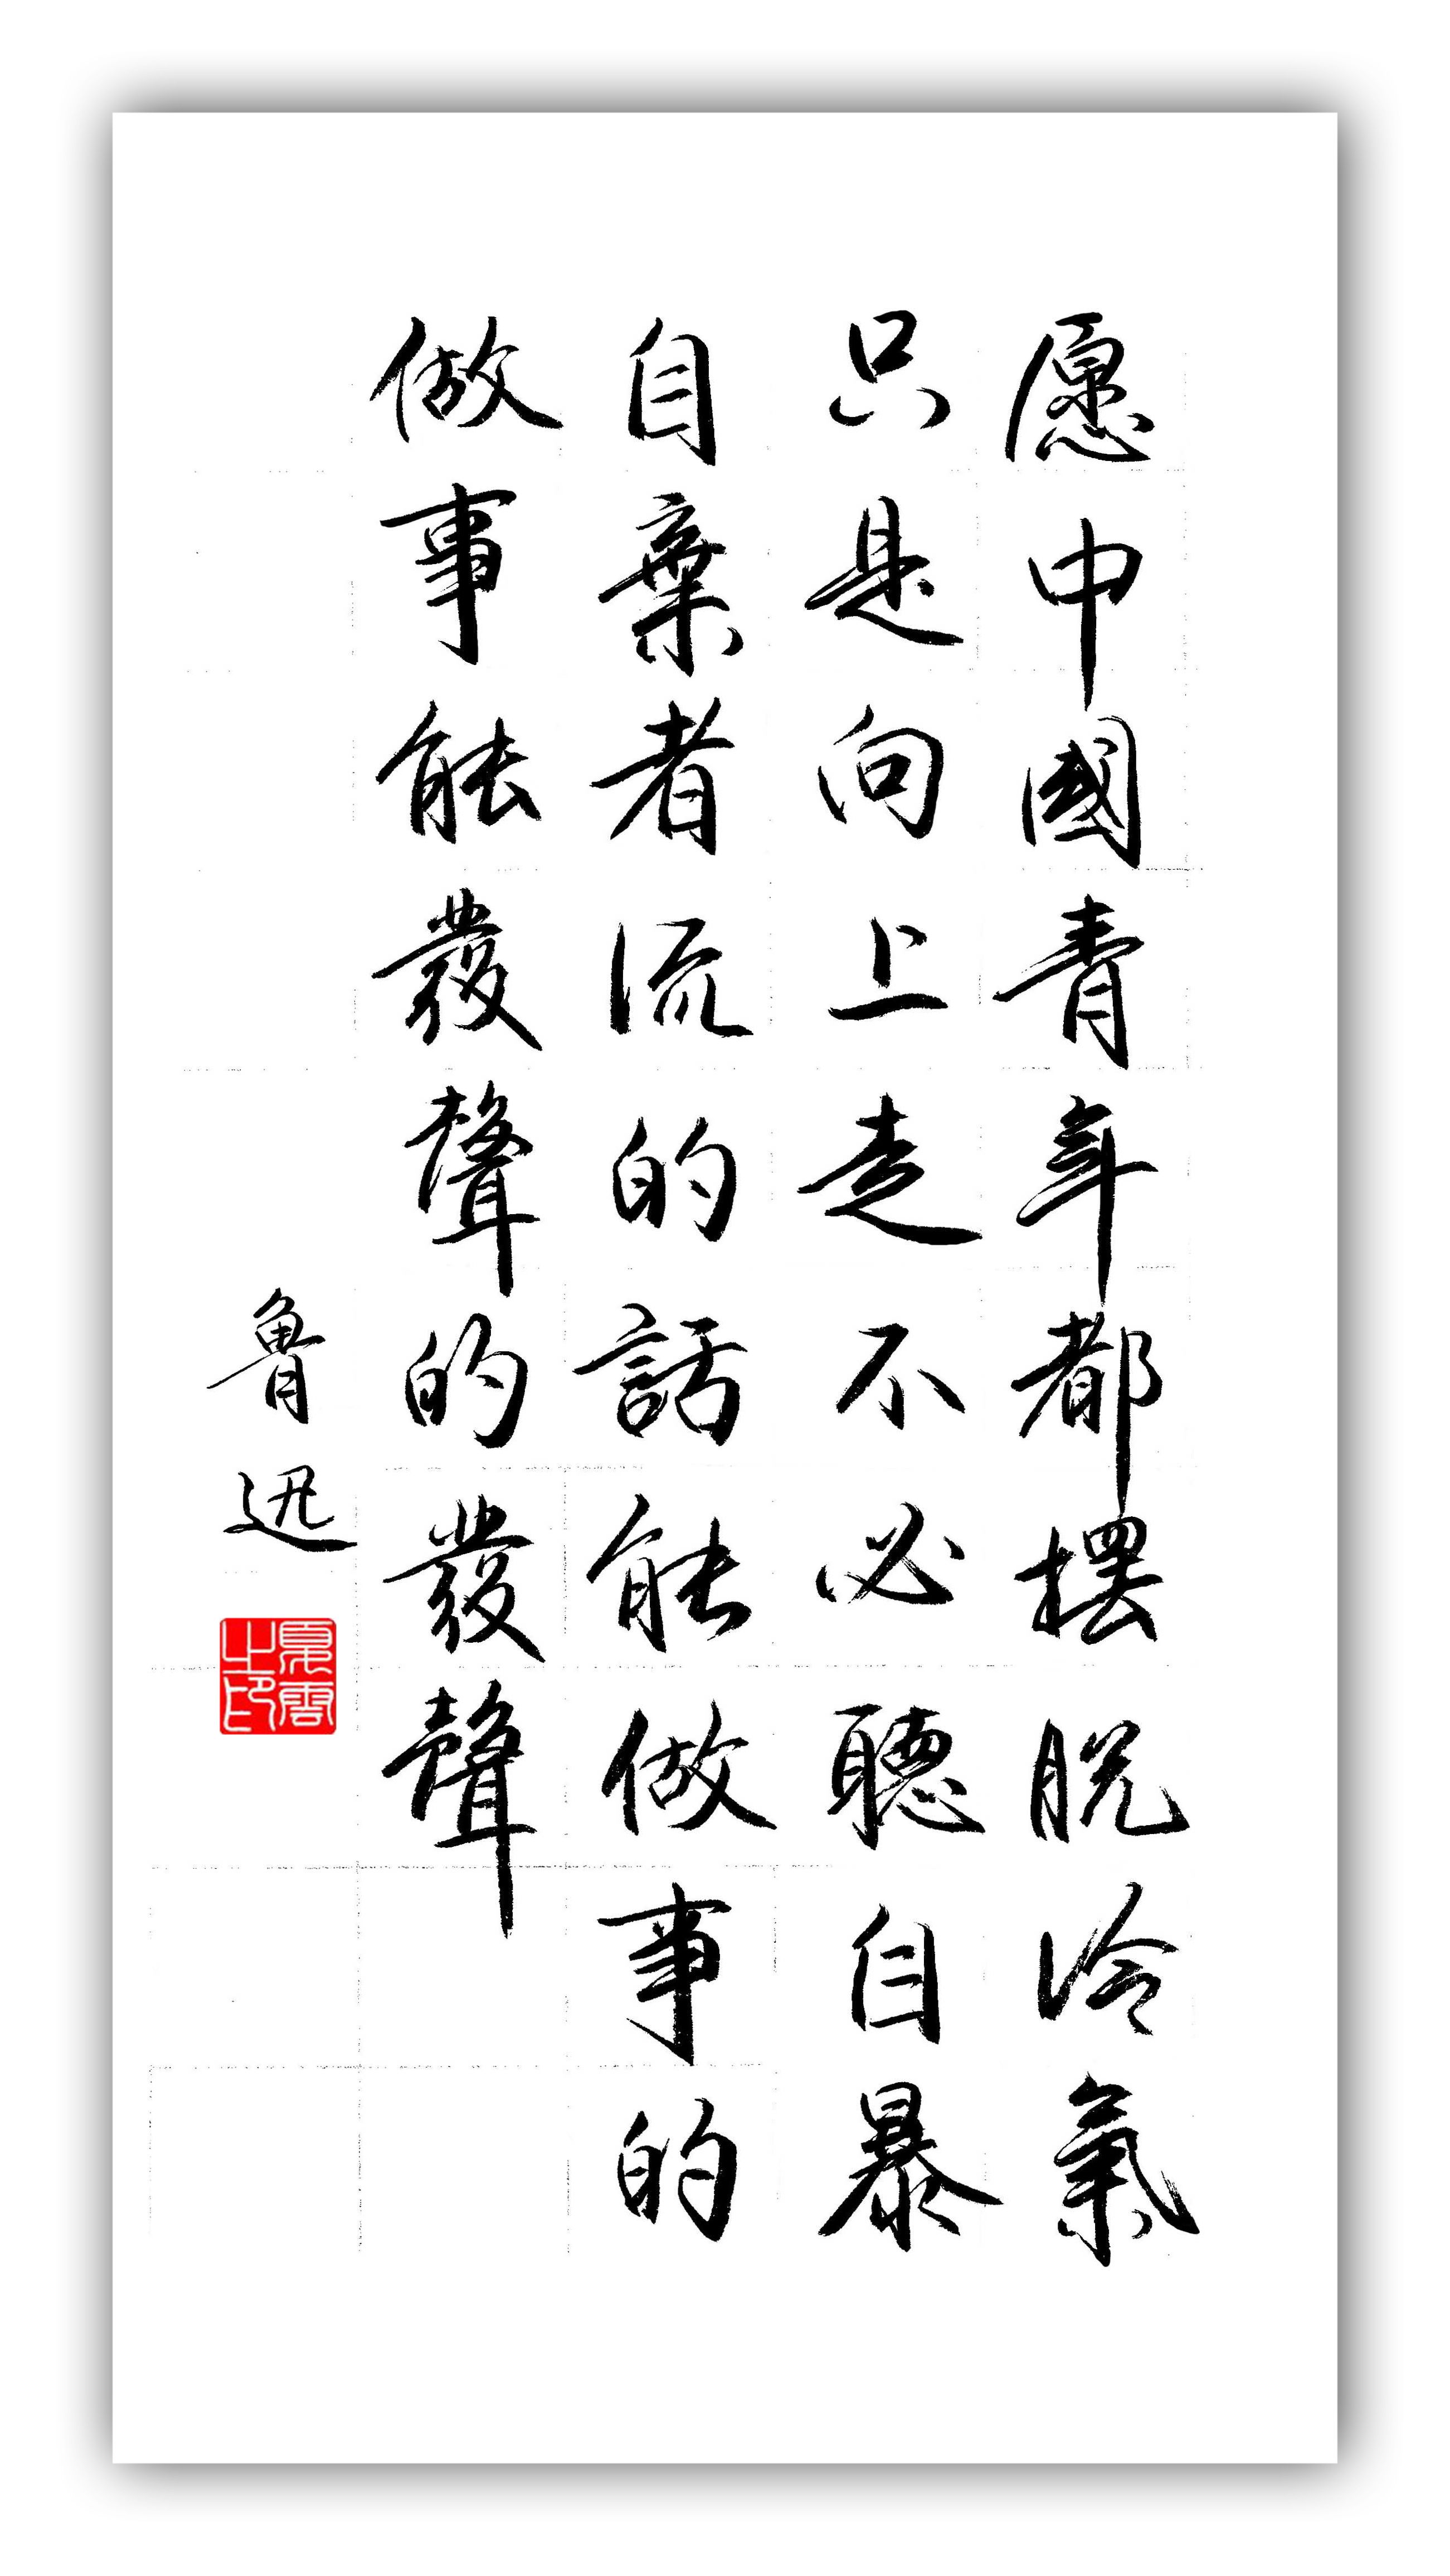 愿中國青年都摆脱冷氣
只是向上走不必聽自暴
自棄者流的話能做事的
做事能發聲的發聲
魯迅
夏雲之印